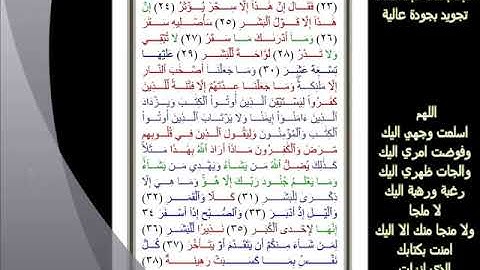 (٢٣) فَقَالَ إِنْ هَٰذَا إِلَّا سِحْرٌ يُؤْثَرُ (٢٤) إِنْ
هَٰذَا إِلَّا قَوْلُ الْبَشَرِ (٢٥) سَأُصْلِيهِ سَقَرَ
(٢٦) وَمَا أَدْرَىٰكَ مَا سَقَرُ (٢٧) لَا تُبْقِي
وَلَا تَذَرُ (٢٨) لَوَّاحَةٌ لِّلْبَشَرِ (٢٩) عَلَيْهَا
تِسْعَةَ عَشَرَ (٣٠) وَمَا جَعَلْنَا أَصْحَٰبَ النَّارِ
إِلَّا مَلَٰٓئِكَةً وَمَا جَعَلْنَا عِدَّتَهُمْ إِلَّا فِتْنَةً لِّلَّذِينَ
كَفَرُوا لِيَسْتَيْقِنَ الَّذِينَ أُوتُوا الْكِتَٰبَ وَيَزْدَادَ
الَّذِينَ ءَامَنُوا إِيمَٰنًا وَلَا يَرْتَابَ الَّذِينَ أُوتُوا
الْكِتَٰبَ وَالْمُؤْمِنُونَ وَلِيَقُولَ الَّذِينَ فِي قُلُوبِهِم
مَّرَضٌ وَالْكَٰفِرُونَ مَاذَا أَرَادَ اللَّهُ بِهَٰذَا مَثَلًا
كَذَٰلِكَ يُضِلُّ اللَّهُ مَن يَشَآءُ وَيَهْدِي مَن يَشَآءُ
وَمَا يَعْلَمُ جُنُودَ رَبِّكَ إِلَّا هُوَ وَمَا هِيَ إِلَّا
ذِكْرَىٰ لِلْبَشَرِ (٣١) كَلَّا وَالْقَمَرِ (٣٢)
وَالَّيْلِ إِذْ أَدْبَرَ (٣٣) وَالصُّبْحِ إِذَا أَسْفَرَ (٣٤)
إِنَّهَا لَإِحْدَى الْكُبَرِ (٣٥) نَذِيرًا لِّلْبَشَرِ (٣٦)
لِمَن شَآءَ مِنكُمْ أَن يَتَقَدَّمَ أَوْ يَتَأَخَّرَ (٣٧) كُلُّ
نَفْسٍ بِمَا كَسَبَتْ رَهِينَةٌ (٣٨)
تجويد بجودة عالية
اللهم
اسلمت وجهي اليك
وفوضت امري اليك
والجات ظهري اليك
رغبة ورهبة اليك
لا ملجا
ولا منجا منك الا اليك
امنت بكتابك